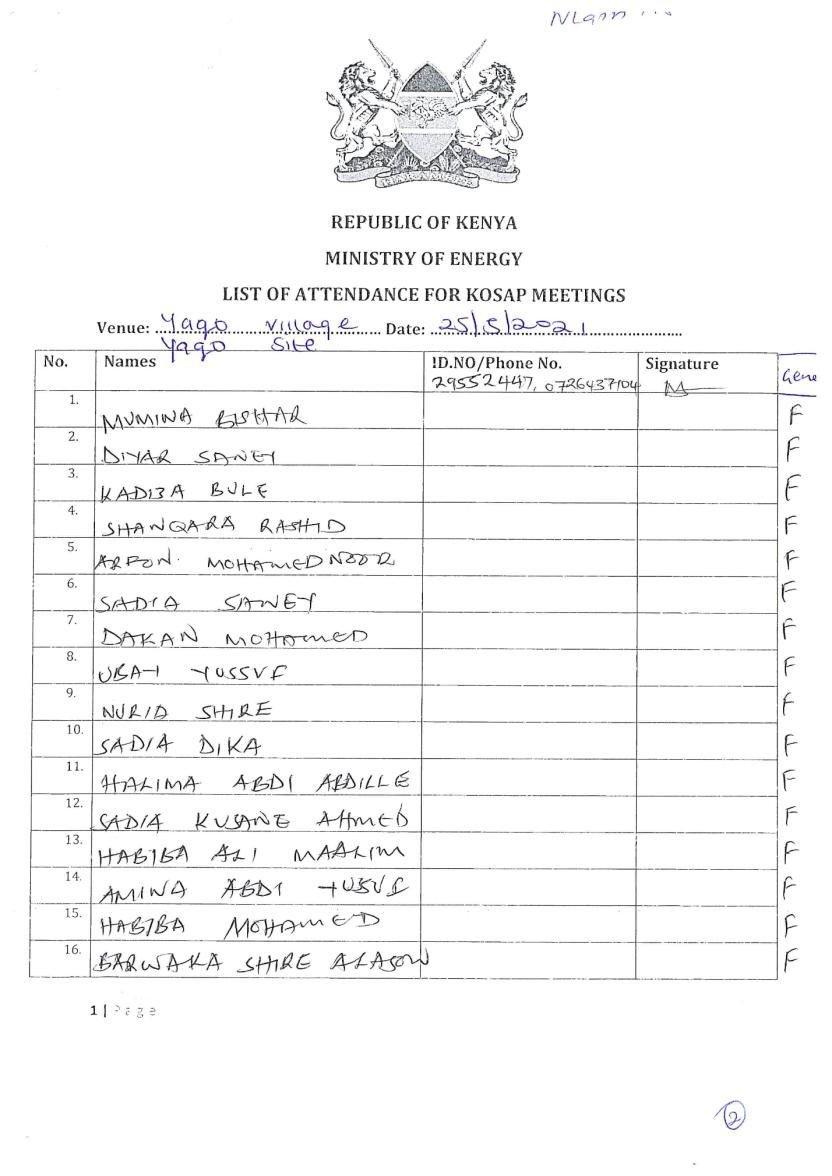 REPUBLIC OF KENYA
MINISTRY OF ENERGY
LIST OF ATTENDANCE FOR KOSAP MEETINGS
Venue: Yaqo village Date: 25/5/2021
Yaqo Site
No. Names ID.NO/Phone No. Signature Gene
29552447, 0726437104
1. MUMINA BISHAR F
2. DIYAR SANEY F
3. KADIJA BULE F
4. SHANQARA RASHID F
5. ARFON MOHAMEDNOOR F
6. SADIA SANEY F
7. DAKAN MOHAMED F
8. UBAH YUSSUF F
9. NURIA SHIRE F
10. SADIA DIKA F
11. HALIMA ABDI ABDILLE F
12. SADIA KUSANE AHMED F
13. HABIBA ALI MAALIM F
14. AMINA ABDI YUSUF F
15. HABIBA MOHAMED F
16. BARWAKA SHIRE ALASOW F
1 | Page
2